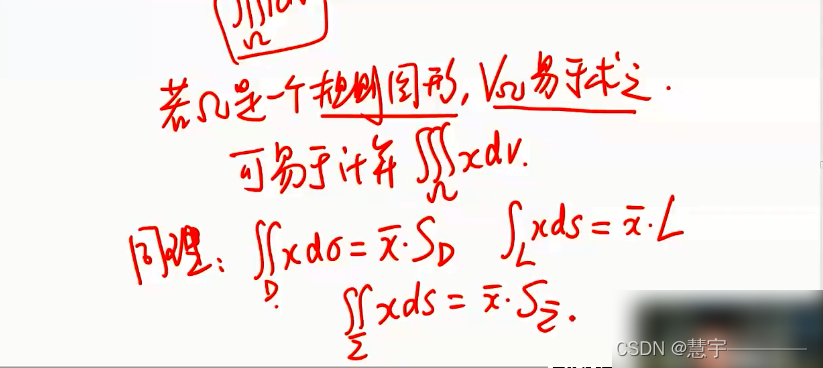 ∭_Ω 1dv
若Ω是一个规则图形, V_Ω易于求之.
可易于计算 ∭_Ω xdv.
同理: ∬_D xdσ = x̄·S_D   ∫_L xds = x̄·L
∬_Σ xds = x̄·S_Σ.
CSDN @慧宇